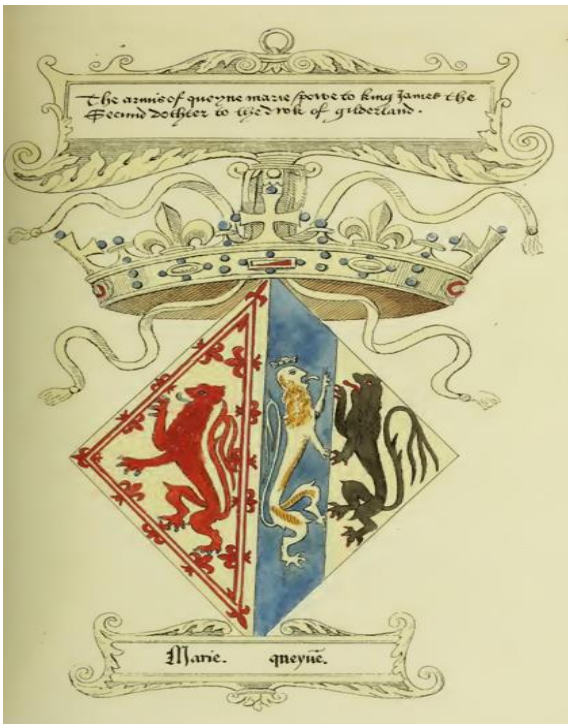 The armis of queyne marie spows to king James the
Secund dochter to the duk of gilderland.
Marie. queyne.